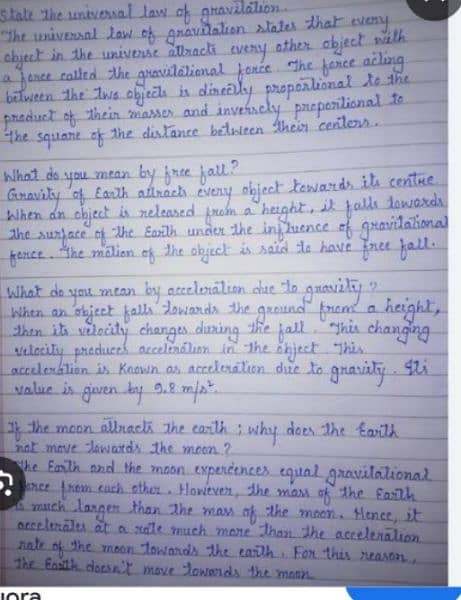 State the universal law of gravitation.
The universal law of gravitation states that every
object in the universe attracts every other object with
a force called the gravitational force. The force acting
between the two objects is directly proportional to the
product of their masses and inversely proportional to
the square of the distance between their centers.
What do you mean by free fall?
Gravity of Earth attracts every object towards its centre
When an object is released from a height, it falls towards
the surface of the Earth under the influence of gravitational
force. The motion of the object is said to have free fall.
What do you mean by acceleration due to gravity?
When an object falls towards the ground from a height,
then its velocity changes during the fall. This changing
velocity produces acceleration in the object. This
acceleration is known as acceleration due to gravity. Its
value is given by 9.8 m/s².
If the moon attracts the earth; why does the Earth
not move towards the moon?
The Earth and the moon experiences equal gravitational
force from each other. However, the mass of the Earth
is much larger than the mass of the moon. Hence, it
accelerates at a rate much more than the acceleration
rate of the moon towards the earth. For this reason,
the Earth doesn't move towards the moon